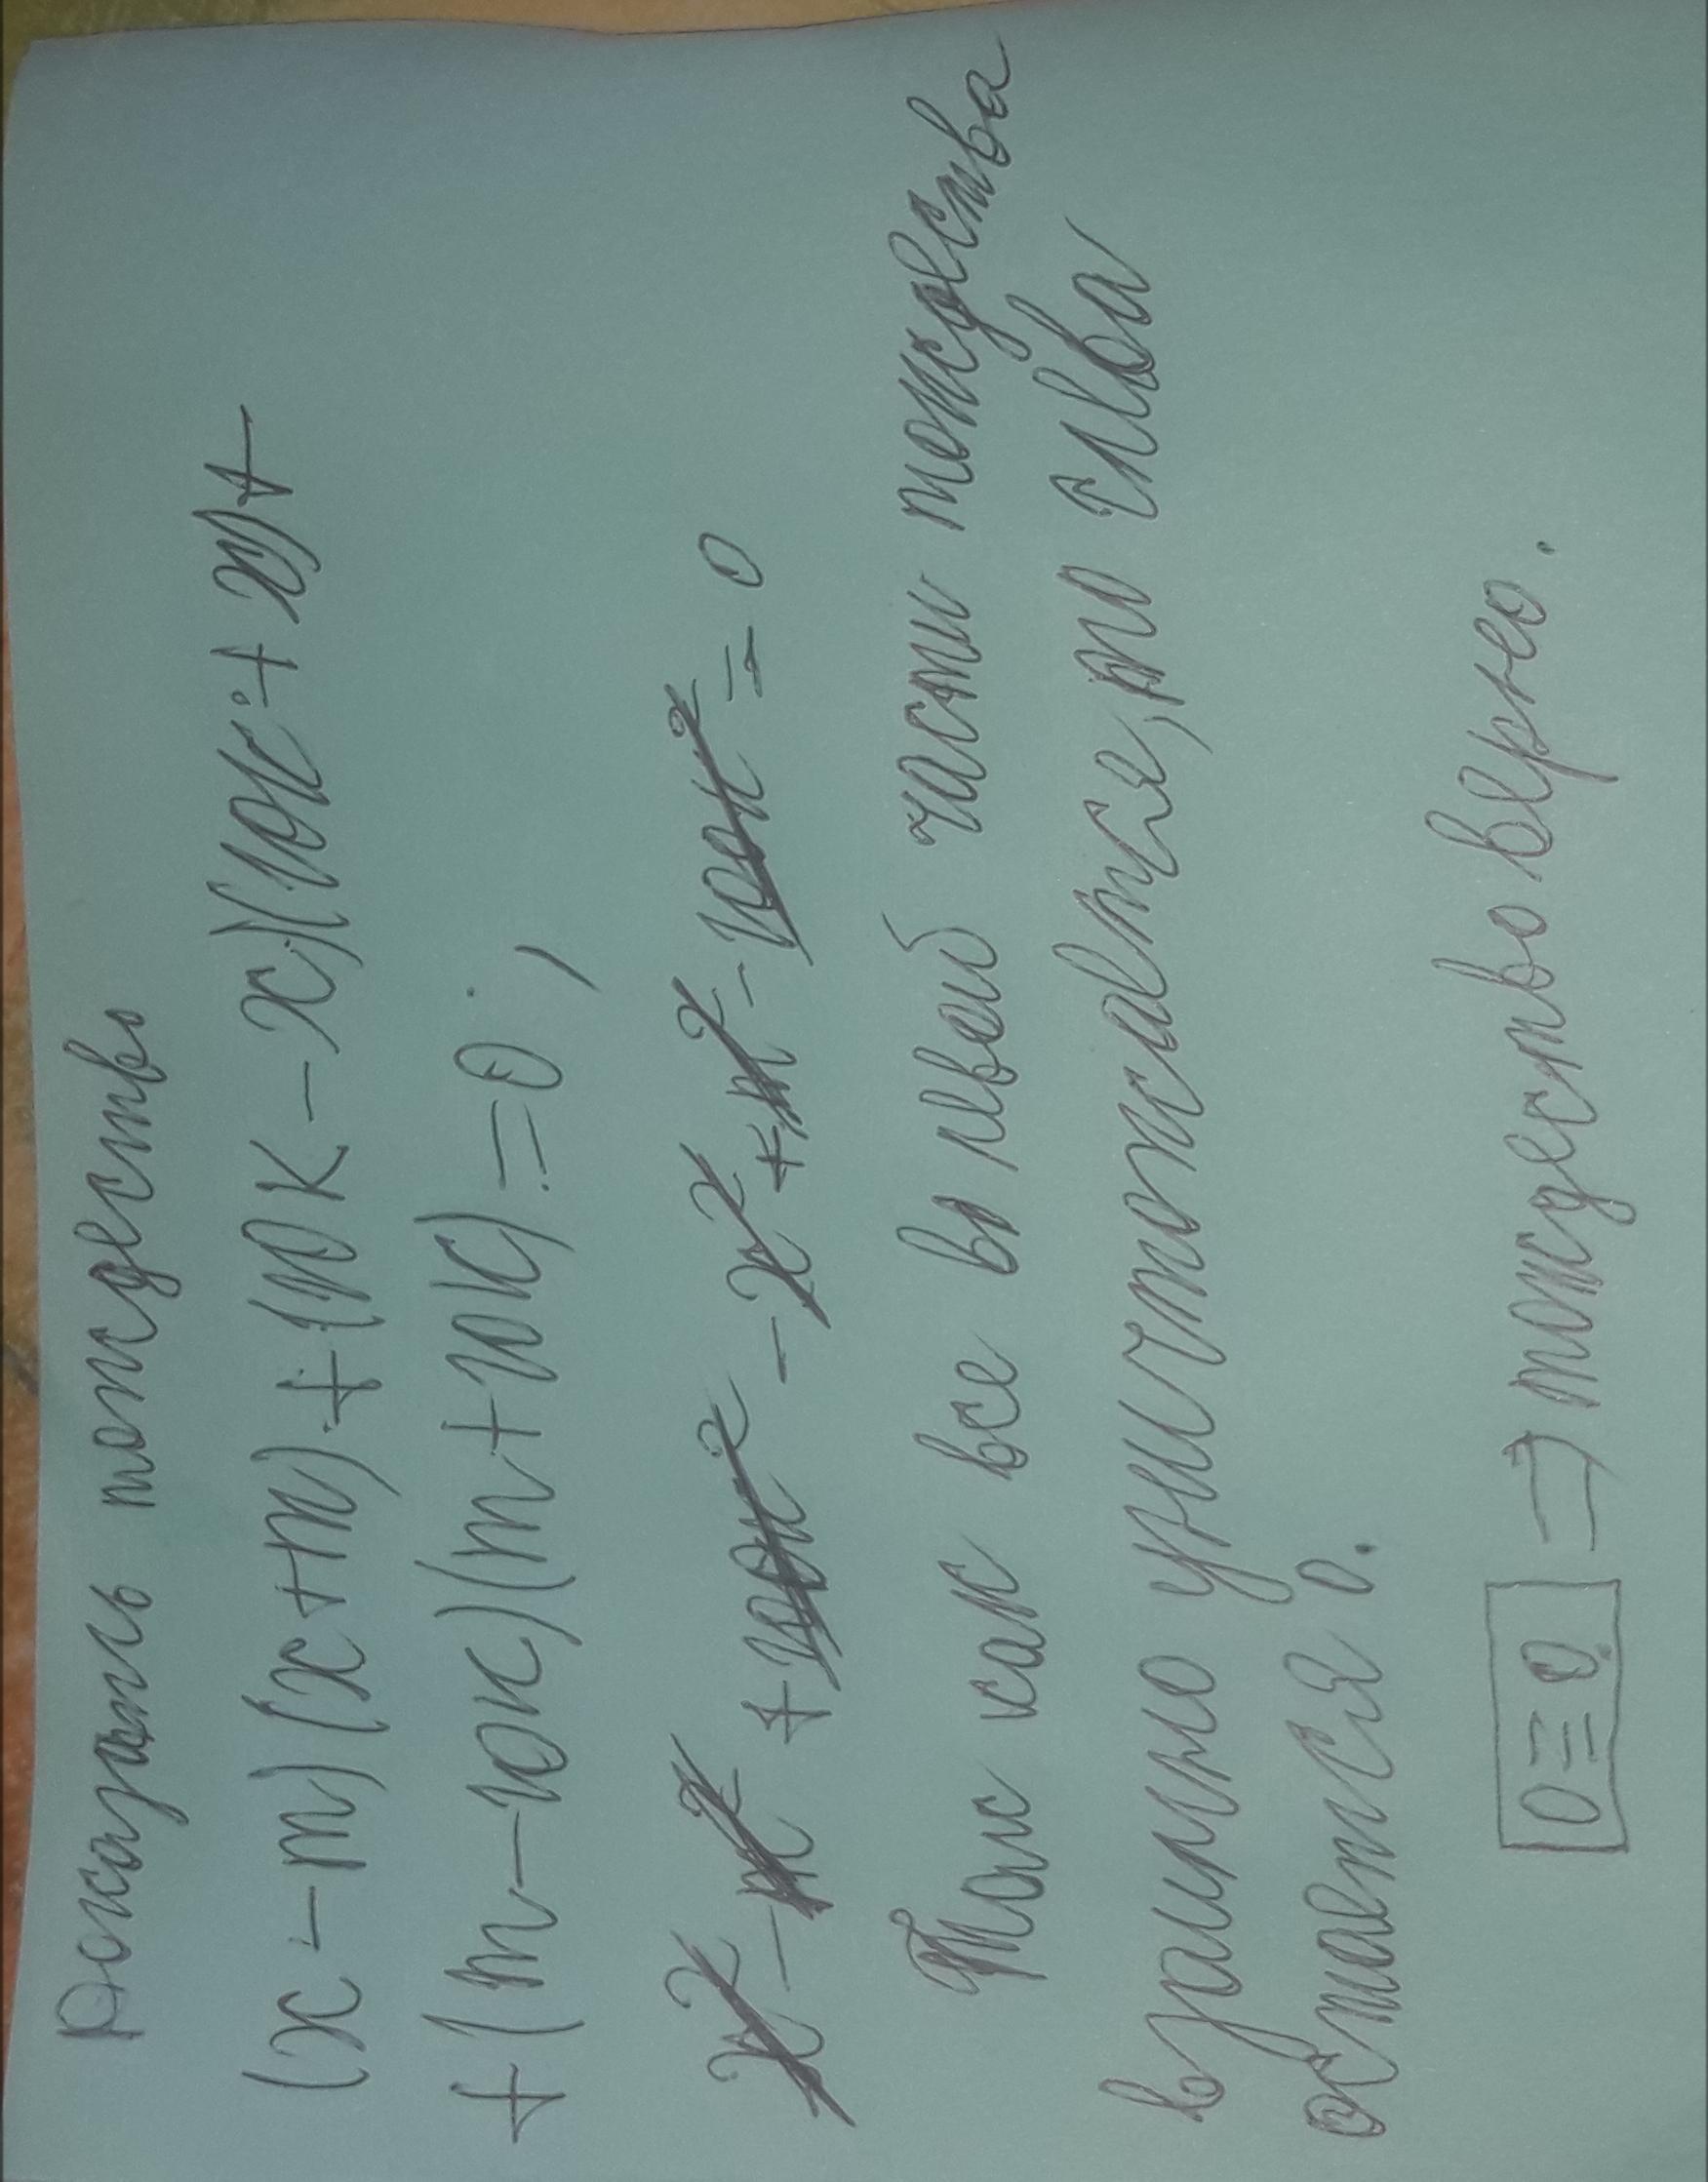 Доказать тождество
(x-m)(x+m)+(10к-x)(10к+x)+
+(m-10к)(m+10к)=0;
x²-m²+10к²-x²+m²-10к²=0
Так как все в левой части тождества
взаимно уничтожается, то слева
остается 0.
0≡0 ⇒ тождество верно.